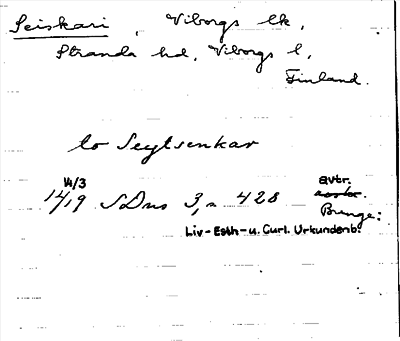 Seiskari, Viborgs lk,
Stranda hd, Viborgs l,
Finland.
to Seytsenkar
14/3
1419 SDns 3, s 428 avtr.
Bunge:
Liv-Esth-u. Curl. Urkundenb.